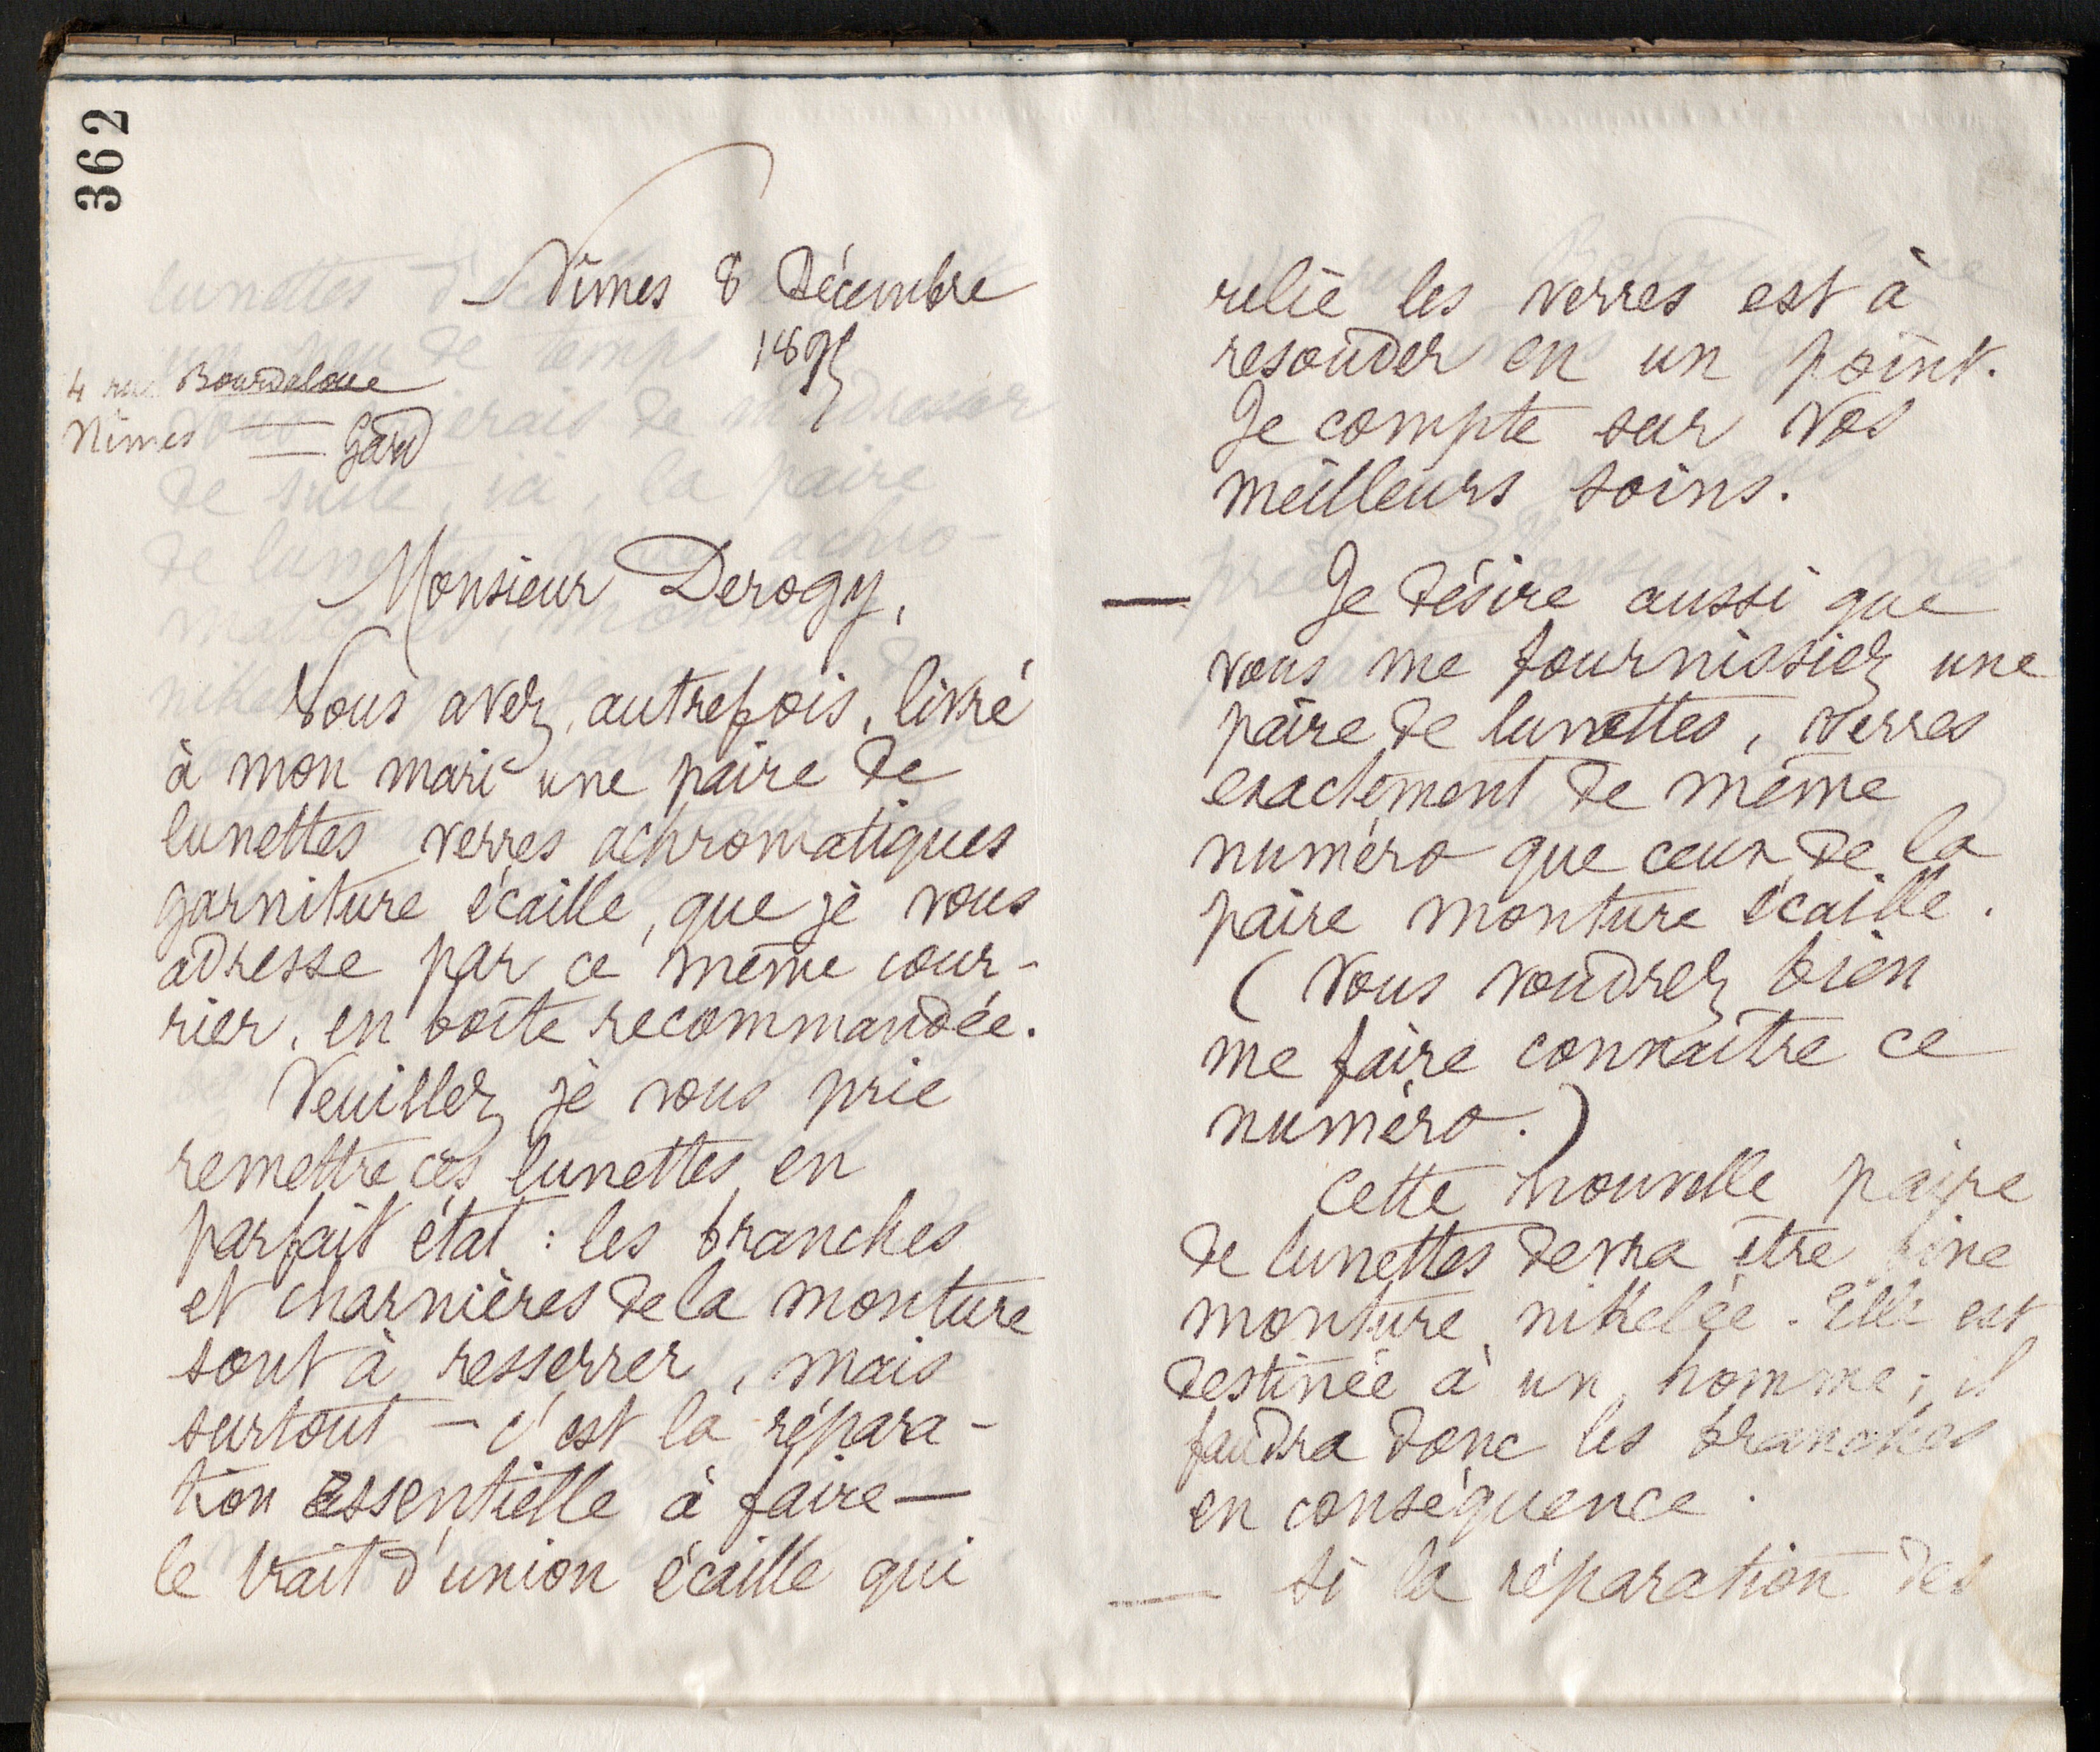 362
Nîmes 8 Décembre
189
4 rue Bourdaloue
Nîmes — Gard
Monsieur Derogy,
Vous avez, autrefois, livré
à mon mari une paire de
lunettes verres achromatiques
garniture écaille, que je vous
adresse par ce même cour-
rier, en boîte recommandée.
Veuillez je vous prie
remettre ces lunettes en
parfait état : les branches
et charnières de la monture
sont à resserrer, mais
surtout – c'est la répara-
tion essentielle à faire —
le trait d'union écaille qui
relie les verres est à
resouder en un point.
Je compte sur vos
meilleurs soins.
— Je désire aussi que
vous me fournissiez une
paire de lunettes, verres
exactement de même
numéro que ceux de la
paire monture écaille.
(Vous voudrez bien
me faire connaître ce
numéro.)
Cette nouvelle paire
de lunettes devra être fine
monture nikelée. Elle est
destinée à un homme ; il
faudra donc les branches
en conséquence.
— Si la réparation des